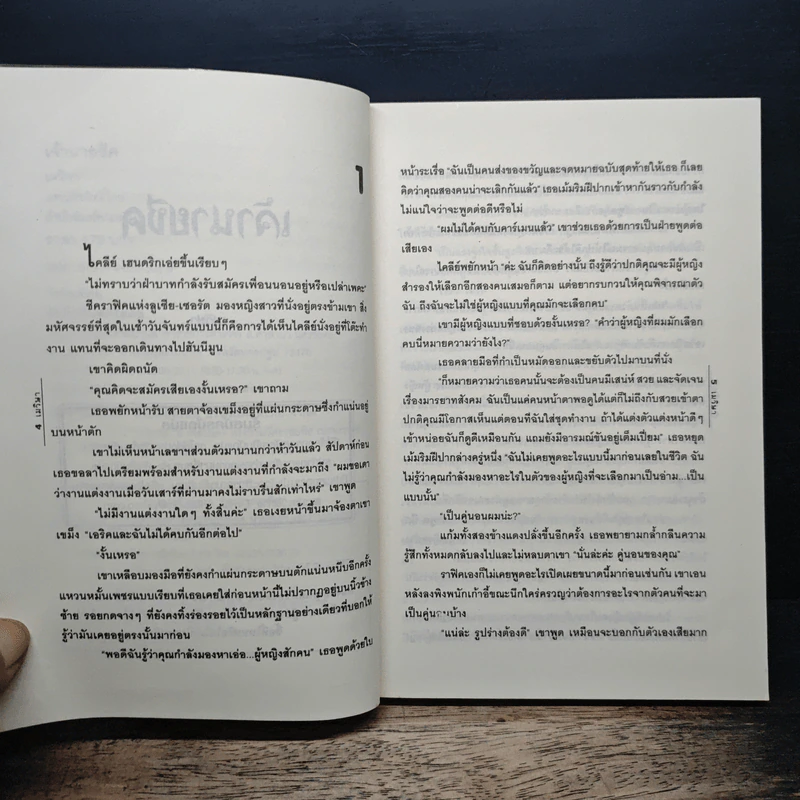 1
ไคลีย์ เฮนดริกเอ่ยขึ้นเรียบๆ
"ไม่ทราบว่าฝ่าบาทกำลังรับสมัครเพื่อนนอนอยู่หรือเปล่าเพคะ"
ชีคราฟิคแห่งลูเซีย-เซอรัด มองหญิงสาวที่นั่งอยู่ตรงข้ามเขา สิ่ง
มหัศจรรย์ที่สุดในเช้าวันจันทร์แบบนี้ก็คือการได้เห็นไคลีย์นั่งอยู่ที่โต๊ะทำ
งาน แทนที่จะออกเดินทางไปฮันนีมูน
เขาคิดผิดถนัด
"คุณคิดจะสมัครเสียเองงั้นเหรอ?" เขาถาม
เธอพยักหน้ารับ สายตาจ้องเขม็งอยู่ที่แผ่นกระดาษซึ่งกำแน่นอยู่
บนหน้าตัก
เขาไม่เห็นหน้าเลขาฯส่วนตัวมานานกว่าห้าวันแล้ว สัปดาห์ก่อน
เธอขอลาไปเตรียมพร้อมสำหรับงานแต่งงานที่กำลังจะมาถึง "ผมขอเดา
ว่างานแต่งงานเมื่อวันเสาร์ที่ผ่านมาคงไม่ราบรื่นสักเท่าไหร่" เขาพูด
"ไม่มีงานแต่งงานใดๆ ทั้งสิ้นค่ะ" เธอเงยหน้าขึ้นมาจ้องตาเขา
เขม็ง "เอริคและฉันไม่ได้คบกันอีกต่อไป"
"งั้นเหรอ"
เขาเหลือบมองมือที่ยังคงกำแผ่นกระดาษบนตักแน่นหนึบอีกครั้ง
แหวนหมั้นเพชรแบบเรียบที่เธอเคยใส่ก่อนหน้านี้ไม่ปรากฏอยู่บนนิ้วข้าง
ซ้าย รอยกดจางๆ ที่ยังคงทิ้งร่องรอยไว้เป็นหลักฐานอย่างเดียวที่บอกให้
รู้ว่ามันเคยอยู่ตรงนั้นมาก่อน
"พอดีฉันรู้ว่าคุณกำลังมองหาเอ่อ...ผู้หญิงสักคน" เธอพูดด้วยใบ
4 เมวิษา
หน้าระเรื่อ "ฉันเป็นคนส่งของขวัญและจดหมายฉบับสุดท้ายให้เธอ ก็เลย
คิดว่าคุณสองคนน่าจะเลิกกันแล้ว" เธอเม้มริมฝีปากเข้าหากันราวกับกำลัง
ไม่แน่ใจว่าจะพูดต่อดีหรือไม่
"ผมไม่ได้คบกับคาร์เมนแล้ว" เขาช่วยเธอด้วยการเป็นฝ่ายพูดต่อ
เสียเอง
ไคลีย์พยักหน้า "ค่ะ ฉันก็คิดอย่างนั้น ถึงรู้ดีว่าปกติคุณจะมีผู้หญิง
สำรองให้เลือกอีกสองคนเสมอก็ตาม แต่อยากรบกวนให้คุณพิจารณาตัว
ฉัน ถึงฉันจะไม่ใช่ผู้หญิงแบบที่คุณมักจะเลือกคบ"
เขามีผู้หญิงแบบที่ชอบด้วยงั้นเหรอ? "คำว่าผู้หญิงที่ผมมักเลือก
คบนี่หมายความว่ายังไง?"
เธอคลายมือที่กำเป็นหมัดออกและขยับตัวไปมาบนที่นั่ง
"ก็หมายความว่าเธอคนนั้นจะต้องเป็นคนมีเสน่ห์ สวย และจัดเจน
เรื่องมารยาทสังคม ฉันเป็นแค่คนหน้าตาพอดูได้แต่ก็ไม่ถึงกับสวยเข้าตา
ปกติคุณมีโอกาสเห็นแต่ตอนที่ฉันใส่ชุดทำงาน ถ้าได้แต่งตัวแต่งหน้าดีๆ
เข้าหน่อยฉันก็ดูดีเหมือนกัน แถมยังมีอารมณ์ขันอยู่เต็มเปี่ยม" เธอหยุด
เม้มริมฝีปากล่างครู่หนึ่ง "ฉันไม่เคยพูดอะไรแบบนี้มาก่อนเลยในชีวิต ฉัน
ไม่รู้ว่าคุณกำลังมองหาอะไรในตัวของผู้หญิงที่จะเลือกมาเป็นอ่าม...เป็น
แบบนั้น"
"เป็นคู่นอนผมน่ะ?"
แก้มทั้งสองข้างแดงปลั่งขึ้นอีกครั้ง เธอพยายามกล้ำกลืนความ
รู้สึกทั้งหมดกลับลงไปและไม่หลบตาเขา "นั่นล่ะค่ะ คู่นอนของคุณ"
ราฟิคเองก็ไม่เคยพูดอะไรเปิดเผยขนาดนี้มาก่อนเช่นกัน เขาเอน
หลังลงพิงพนักเก้าอี้ขณะนึกใคร่ครวญว่าต้องการอะไรจากตัวคนที่จะมา
เป็นคู่นอนบ้าง
"แน่ล่ะ รูปร่างต้องดี" เขาพูด เหมือนจะบอกกับตัวเองเสียมาก
5 เมวิษา